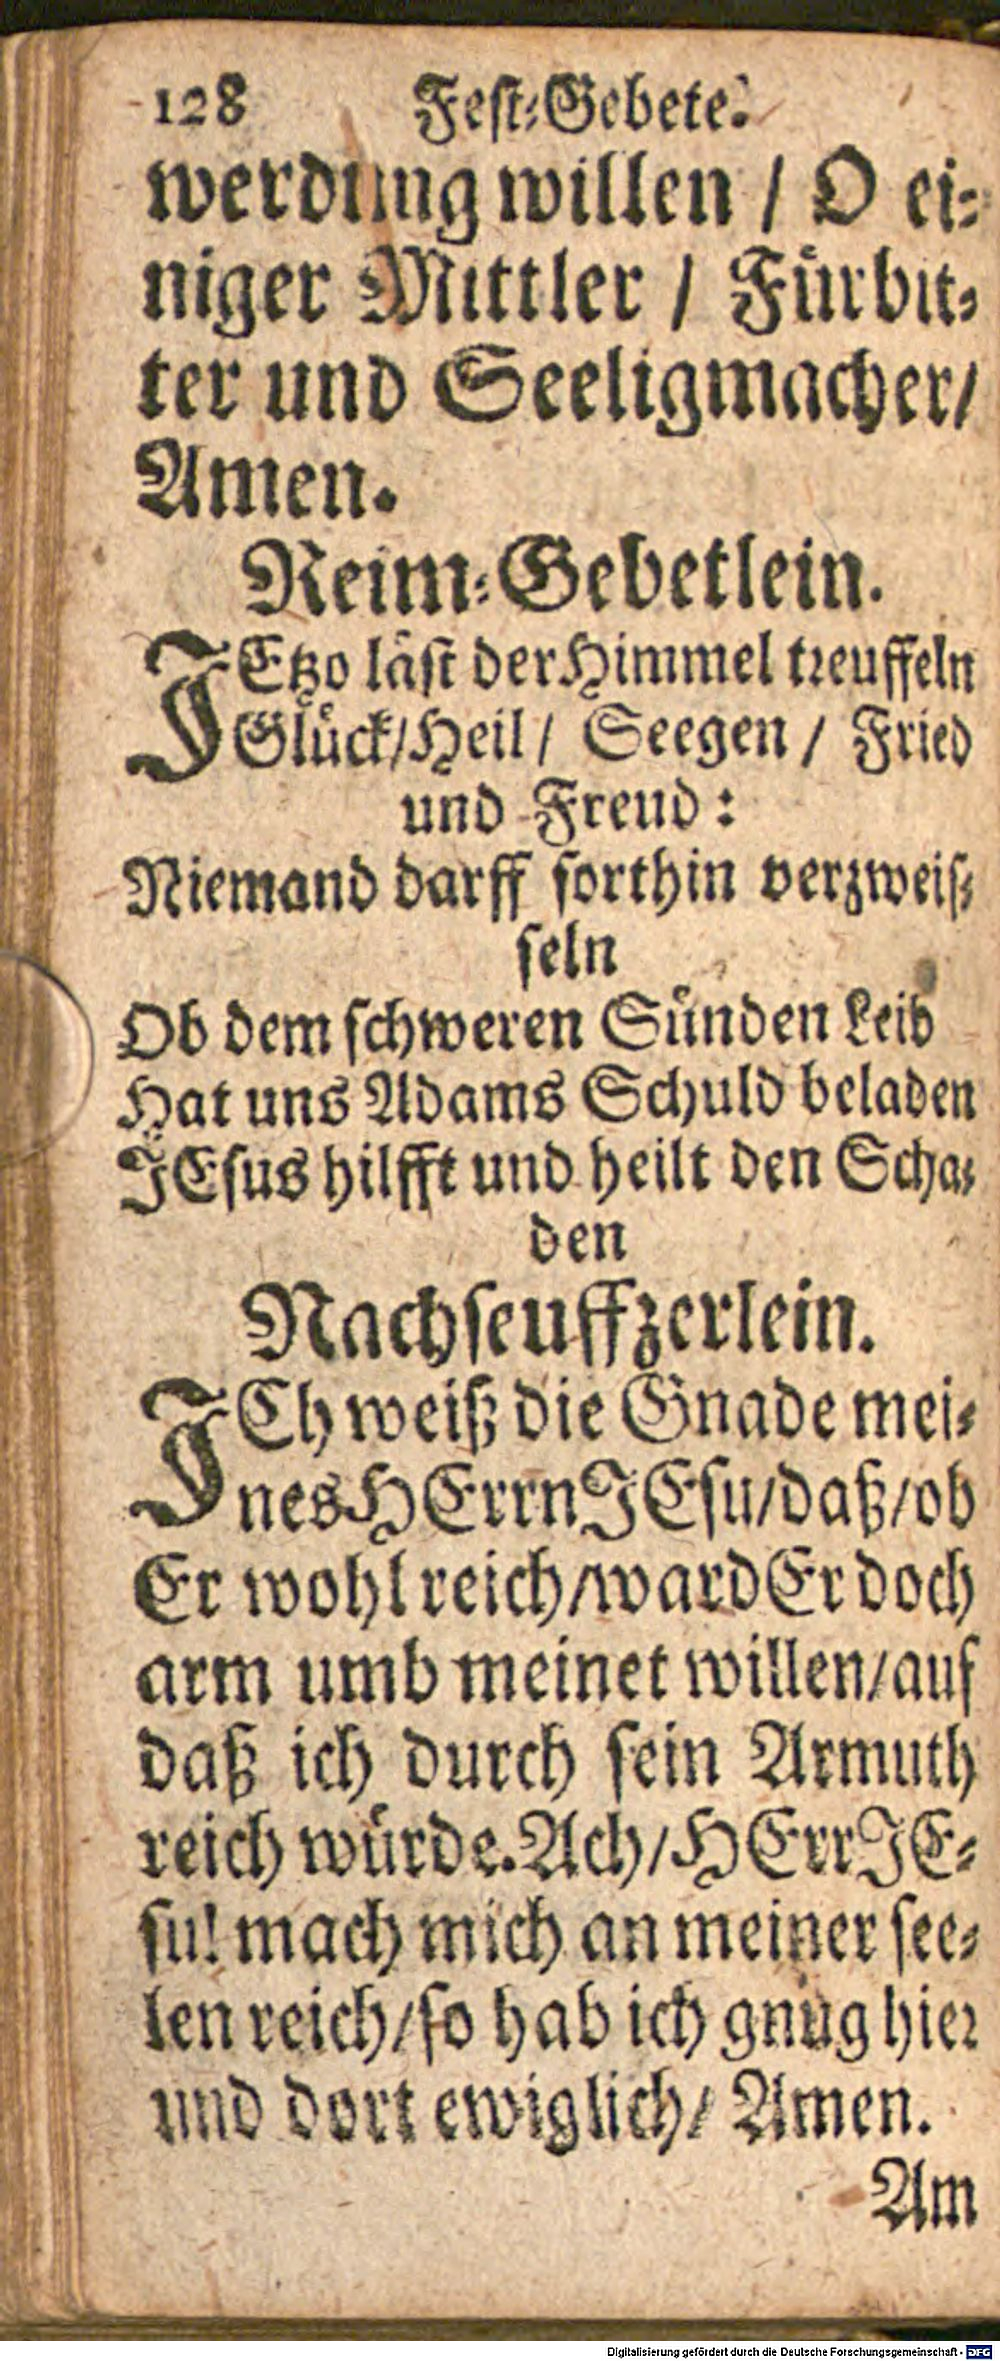 128 Feſt-Gebete.
werdung willen / O ei-
niger Mittler / Fürbit-
ter und Seeligmacher/
Amen.
Reim-Gebetlein.
JEtzo läſt der Himmel treuffeln
Glück/Heil/ Seegen / Fried
und Freud:
Niemand darff forthin verzweif-
feln
Ob dem ſchweren Sünden Leid
Hat uns Adams Schuld beladen
JEſus hilfft und heilt den Scha-
den
Nachſeuffzerlein.
JCh weiß die Gnade mei-
nes HErrn JEſu/daß/ob
Er wohl reich/ward Er doch
arm umb meinet willen/auf
daß ich durch ſein Armuth
reich würde. Ach/HErr JE-
ſu! mach mich an meiner ſee-
len reich/ſo hab ich gnug hier
und dort ewiglich/ Amen.
Am
Digitalisierung gefördert durch die Deutsche Forschungsgemeinschaft - DFG